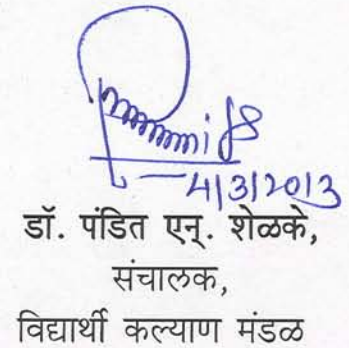 4/3/2013
डॉ. पंडित एन्. शेळके,
संचालक,
विद्यार्थी कल्याण मंडळ